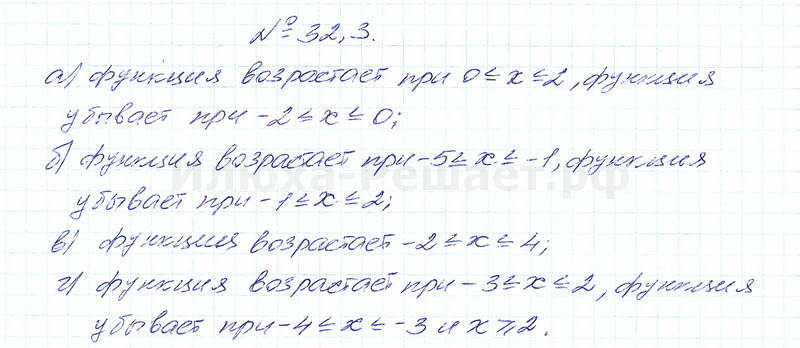 № 32,3.
а) функция возрастает при 0 ≤ x ≤ 2, функция
убывает при -2 ≤ x ≤ 0;
б) функция возрастает при -5 ≤ x ≤ -1, функция
илюха-решает.рф
убывает при -1 ≤ x ≤ 2;
в) функция возрастает -2 ≤ x ≤ 4;
г) функция возрастает при -3 ≤ x ≤ 2, функция
убывает при -4 ≤ x ≤ -3 и x ⩾ 2.